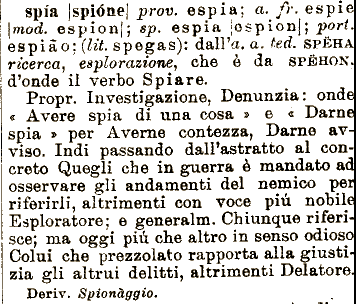 spía |spióne| prov. espia; a. fr. espie
|mod. espion|; sp. espia |espion|; port.
espião; (lit. spegas): dall'a. a. ted. SPËHA
ricerca, esplorazione, che è da SPËHÔN.
d'onde il verbo Spiare.
Propr. Investigazione, Denunzia: onde
« Avere spia di una cosa » e « Darne
spia » per Averne contezza, Darne av-
viso. Indi passando dall'astratto al con-
creto Quegli che in guerra è mandato ad
osservare gli andamenti del nemico per
riferirli, altrimenti con voce più nobile
Esploratore; e generalm. Chiunque riferi-
sce; ma oggi più che altro in senso odioso
Colui che prezzolato rapporta alla giusti-
zia gli altrui delitti, altrimenti Delatore.
Deriv. Spionàggio.